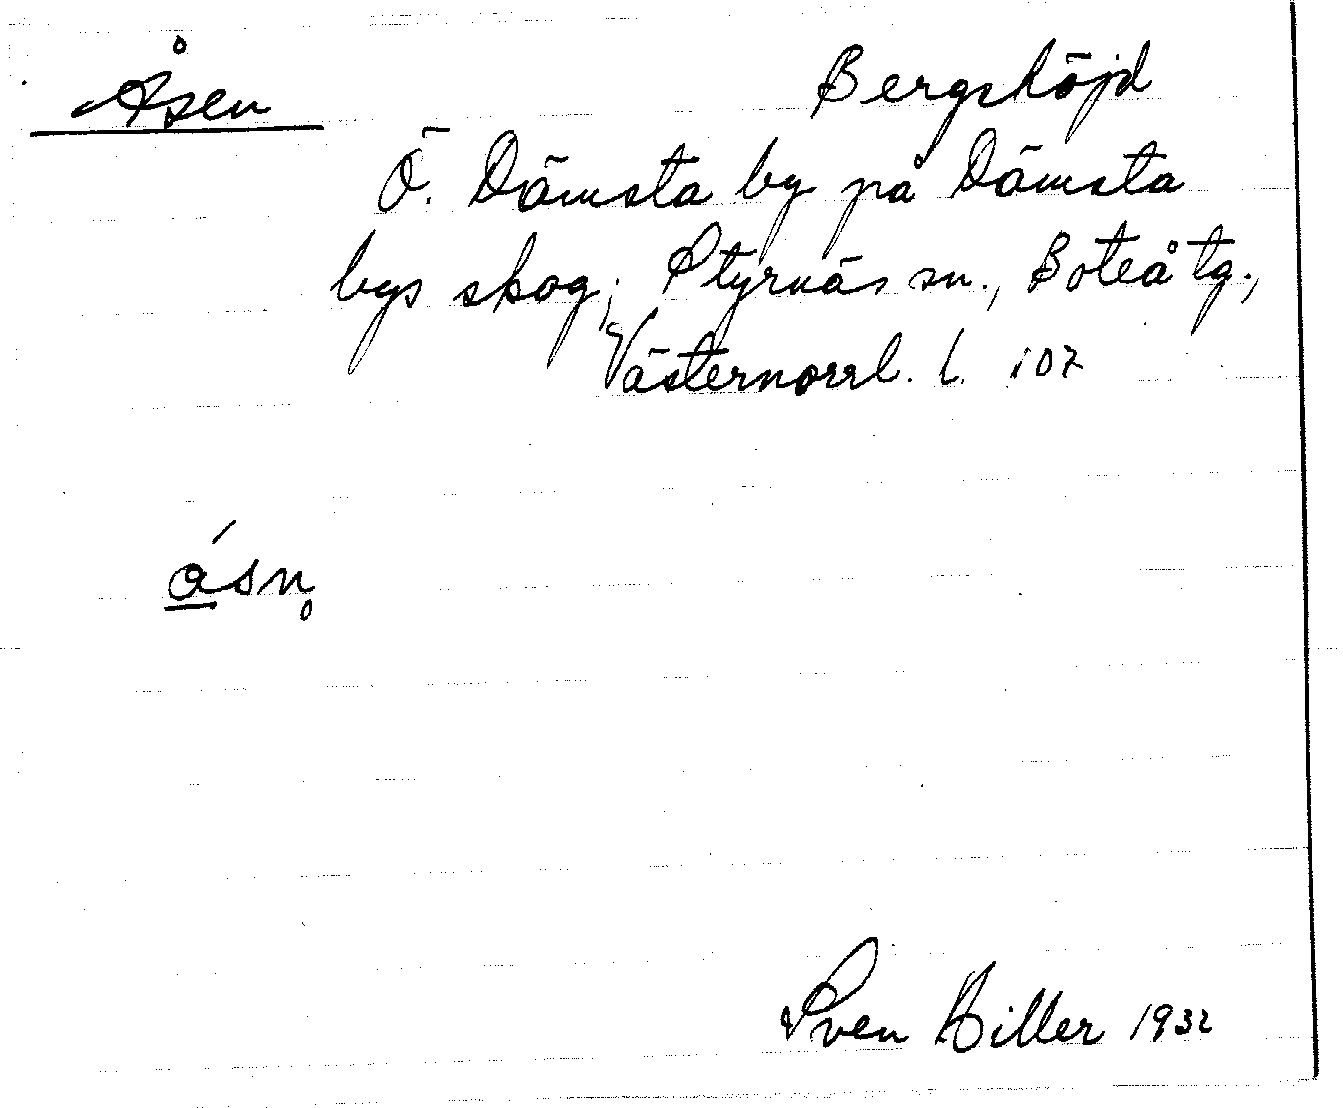 Åsen
Bergshöjd
Ö. Dämsta by på Dämsta
bys skog; Styrnäs sn., Boteå tg.,
Västernorrl. l. 107
á̲sn̥
Sven Hiller 1932